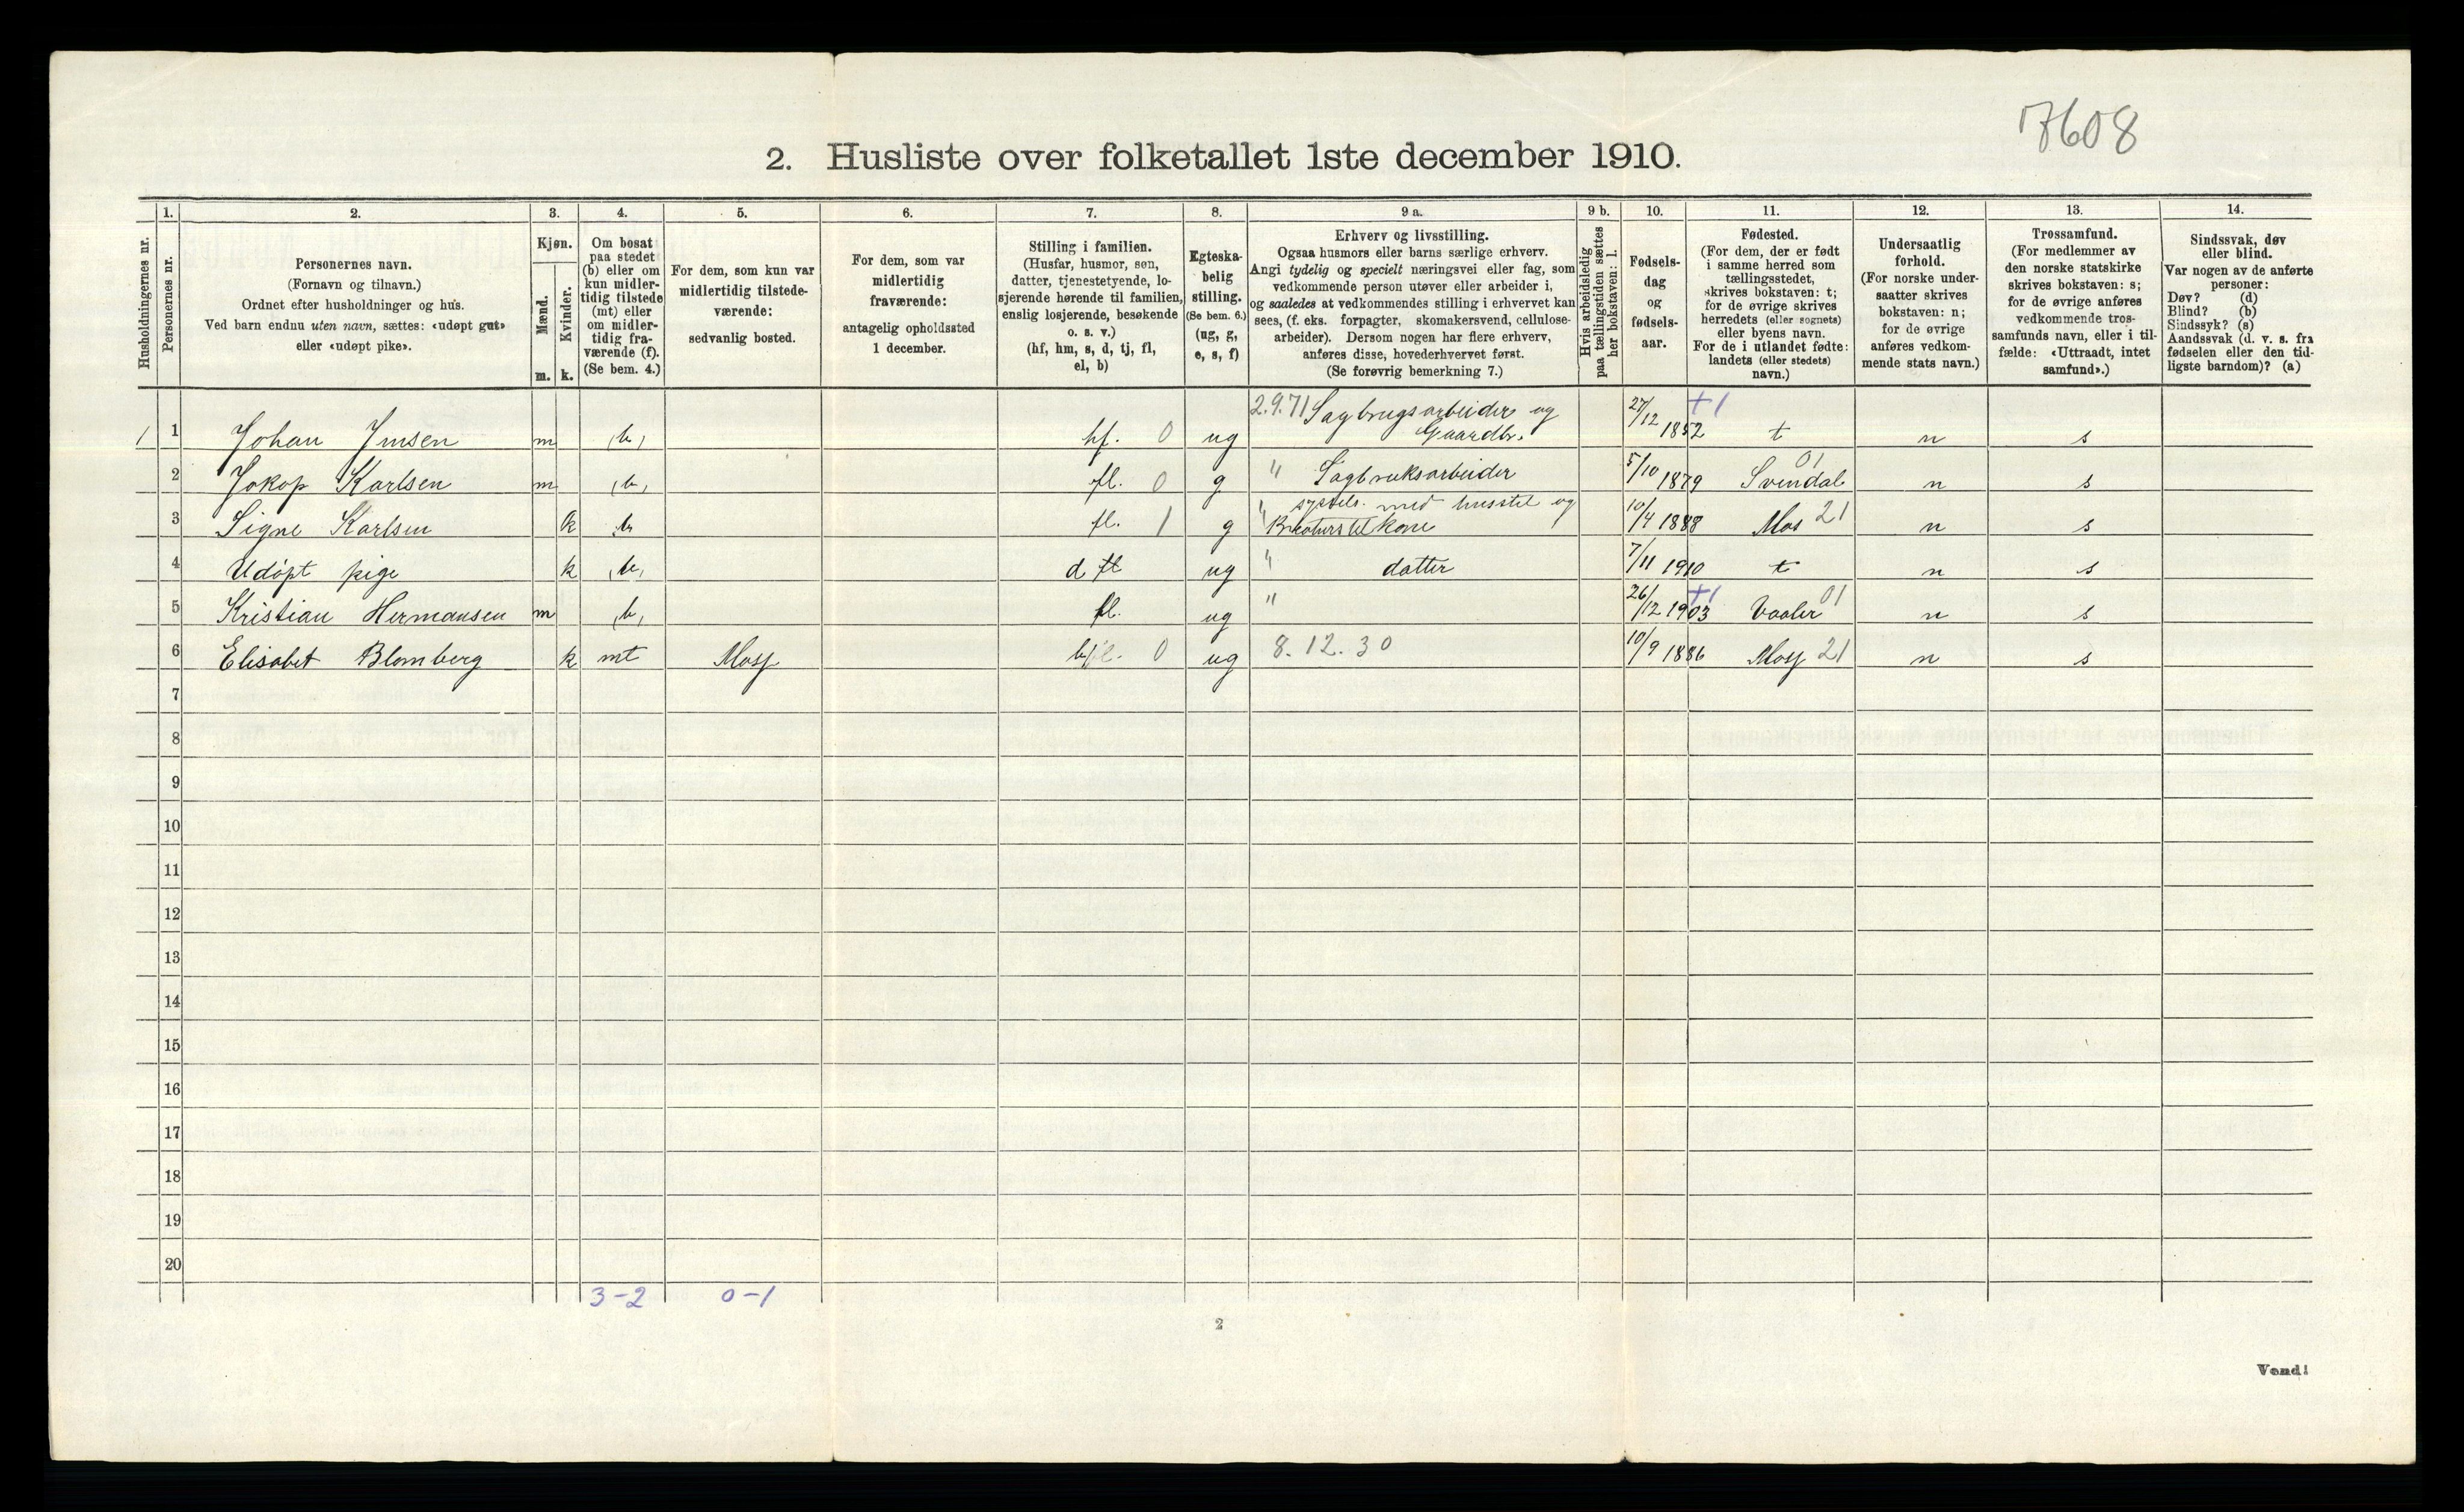 7608
2. Husliste over folketallet 1ste december 1910.
1. 2. 3. 4. 5. 6. 7. 8. 9 a. 9 b. 10. 11. 12. 13. 14.
Husholdningernes nr.
Personernes nr.
Personernes navn.
(Fornavn og tilnavn.)
Ordnet efter husholdninger og hus.
Ved barn endnu uten navn, sættes: «udøpt gut»
eller «udøpt pike».
Kjøn.
Mænd.
Kvinder.
m. k.
Om bosat
paa stedet
(b) eller om
kun midler-
tidig tilstede
(mt) eller
om midler-
tidig fra-
værende (f).
(Se bem. 4.)
For dem, som kun var
midlertidig tilstede-
værende:
sedvanlig bosted.
For dem, som var
midlertidig
fraværende:
antagelig opholdssted
1 december.
Stilling i familien.
(Husfar, husmor, søn,
datter, tjenestetyende, lo-
sjerende hørende til familien,
enslig losjerende, besøkende
o. s. v.)
(hf, hm, s, d, tj, fl,
el, b)
Egteska-
belig
stilling.
(Se bem. 6.)
(ug, g,
e, s, f)
Erhverv og livsstilling.
Ogsaa husmors eller barns særlige erhverv.
Angi tydelig og specielt næringsvei eller fag, som
vedkommende person utøver eller arbeider i,
og saaledes at vedkommendes stilling i erhvervet kan
sees, (f. eks. forpagter, skomakersvend, cellulose-
arbeider). Dersom nogen har flere erhverv,
anføres disse, hovederhvervet først.
(Se forøvrig bemerkning 7.)
Hvis arbeidsledig
paa tællingstiden sættes
her bokstaven: l.
Fødsels-
dag
og
fødsels-
aar.
Fødested.
(For dem, der er født
i samme herred som
tællingsstedet,
skrives bokstaven: t;
for de øvrige skrives
herredets (eller sognets)
eller byens navn.
For de i utlandet fødte:
landets (eller stedets)
navn.)
Undersaatlig
forhold.
(For norske under-
saatter skrives
bokstaven: n;
for de øvrige
anføres vedkom-
mende stats navn.)
Trossamfund.
(For medlemmer av
den norske statskirke
skrives bokstaven: s;
for de øvrige anføres
vedkommende tros-
samfunds navn, eller i til-
fælde: «Uttraadt, intet
samfund».)
Sindssvak, døv
eller blind.
Var nogen av de anførte
personer:
Døv? (d)
Blind? (b)
Sindssyk? (s)
Aandssvak (d. v. s. fra
fødselen eller den tid-
ligste barndom)? (a)
1 1 Johan Jensen m (b) hf. 0 ug 2.9.71 Sagbrugsarbeider og Gaardbr. 27/12 1852 +1 t n s
2 Jokop Karlsen m (b) fl. 0 g " Sagbruksarbeider 5/10 1879 Svendal 01 n s
3 Signe Karlsen k b fl. 1 g " syssels. med husstel og Kreaturstel kone 10/4 1888 Mos 21 n s
4 Udøpt pige k (b) d fl ug " datter 7/11 1910 t n s
5 Kristian Hermansen m (b) fl. ug " 26/12 1903 +1 Vaaler 01 n s
6 Elisabet Blomberg k mt Moss b 0 ug 8.12.30 10/9 1886 Moss 21 n s
7
8
9
10
11
12
13
14
15
16
17
18
19
20
3-2 0-1
2
Vend!